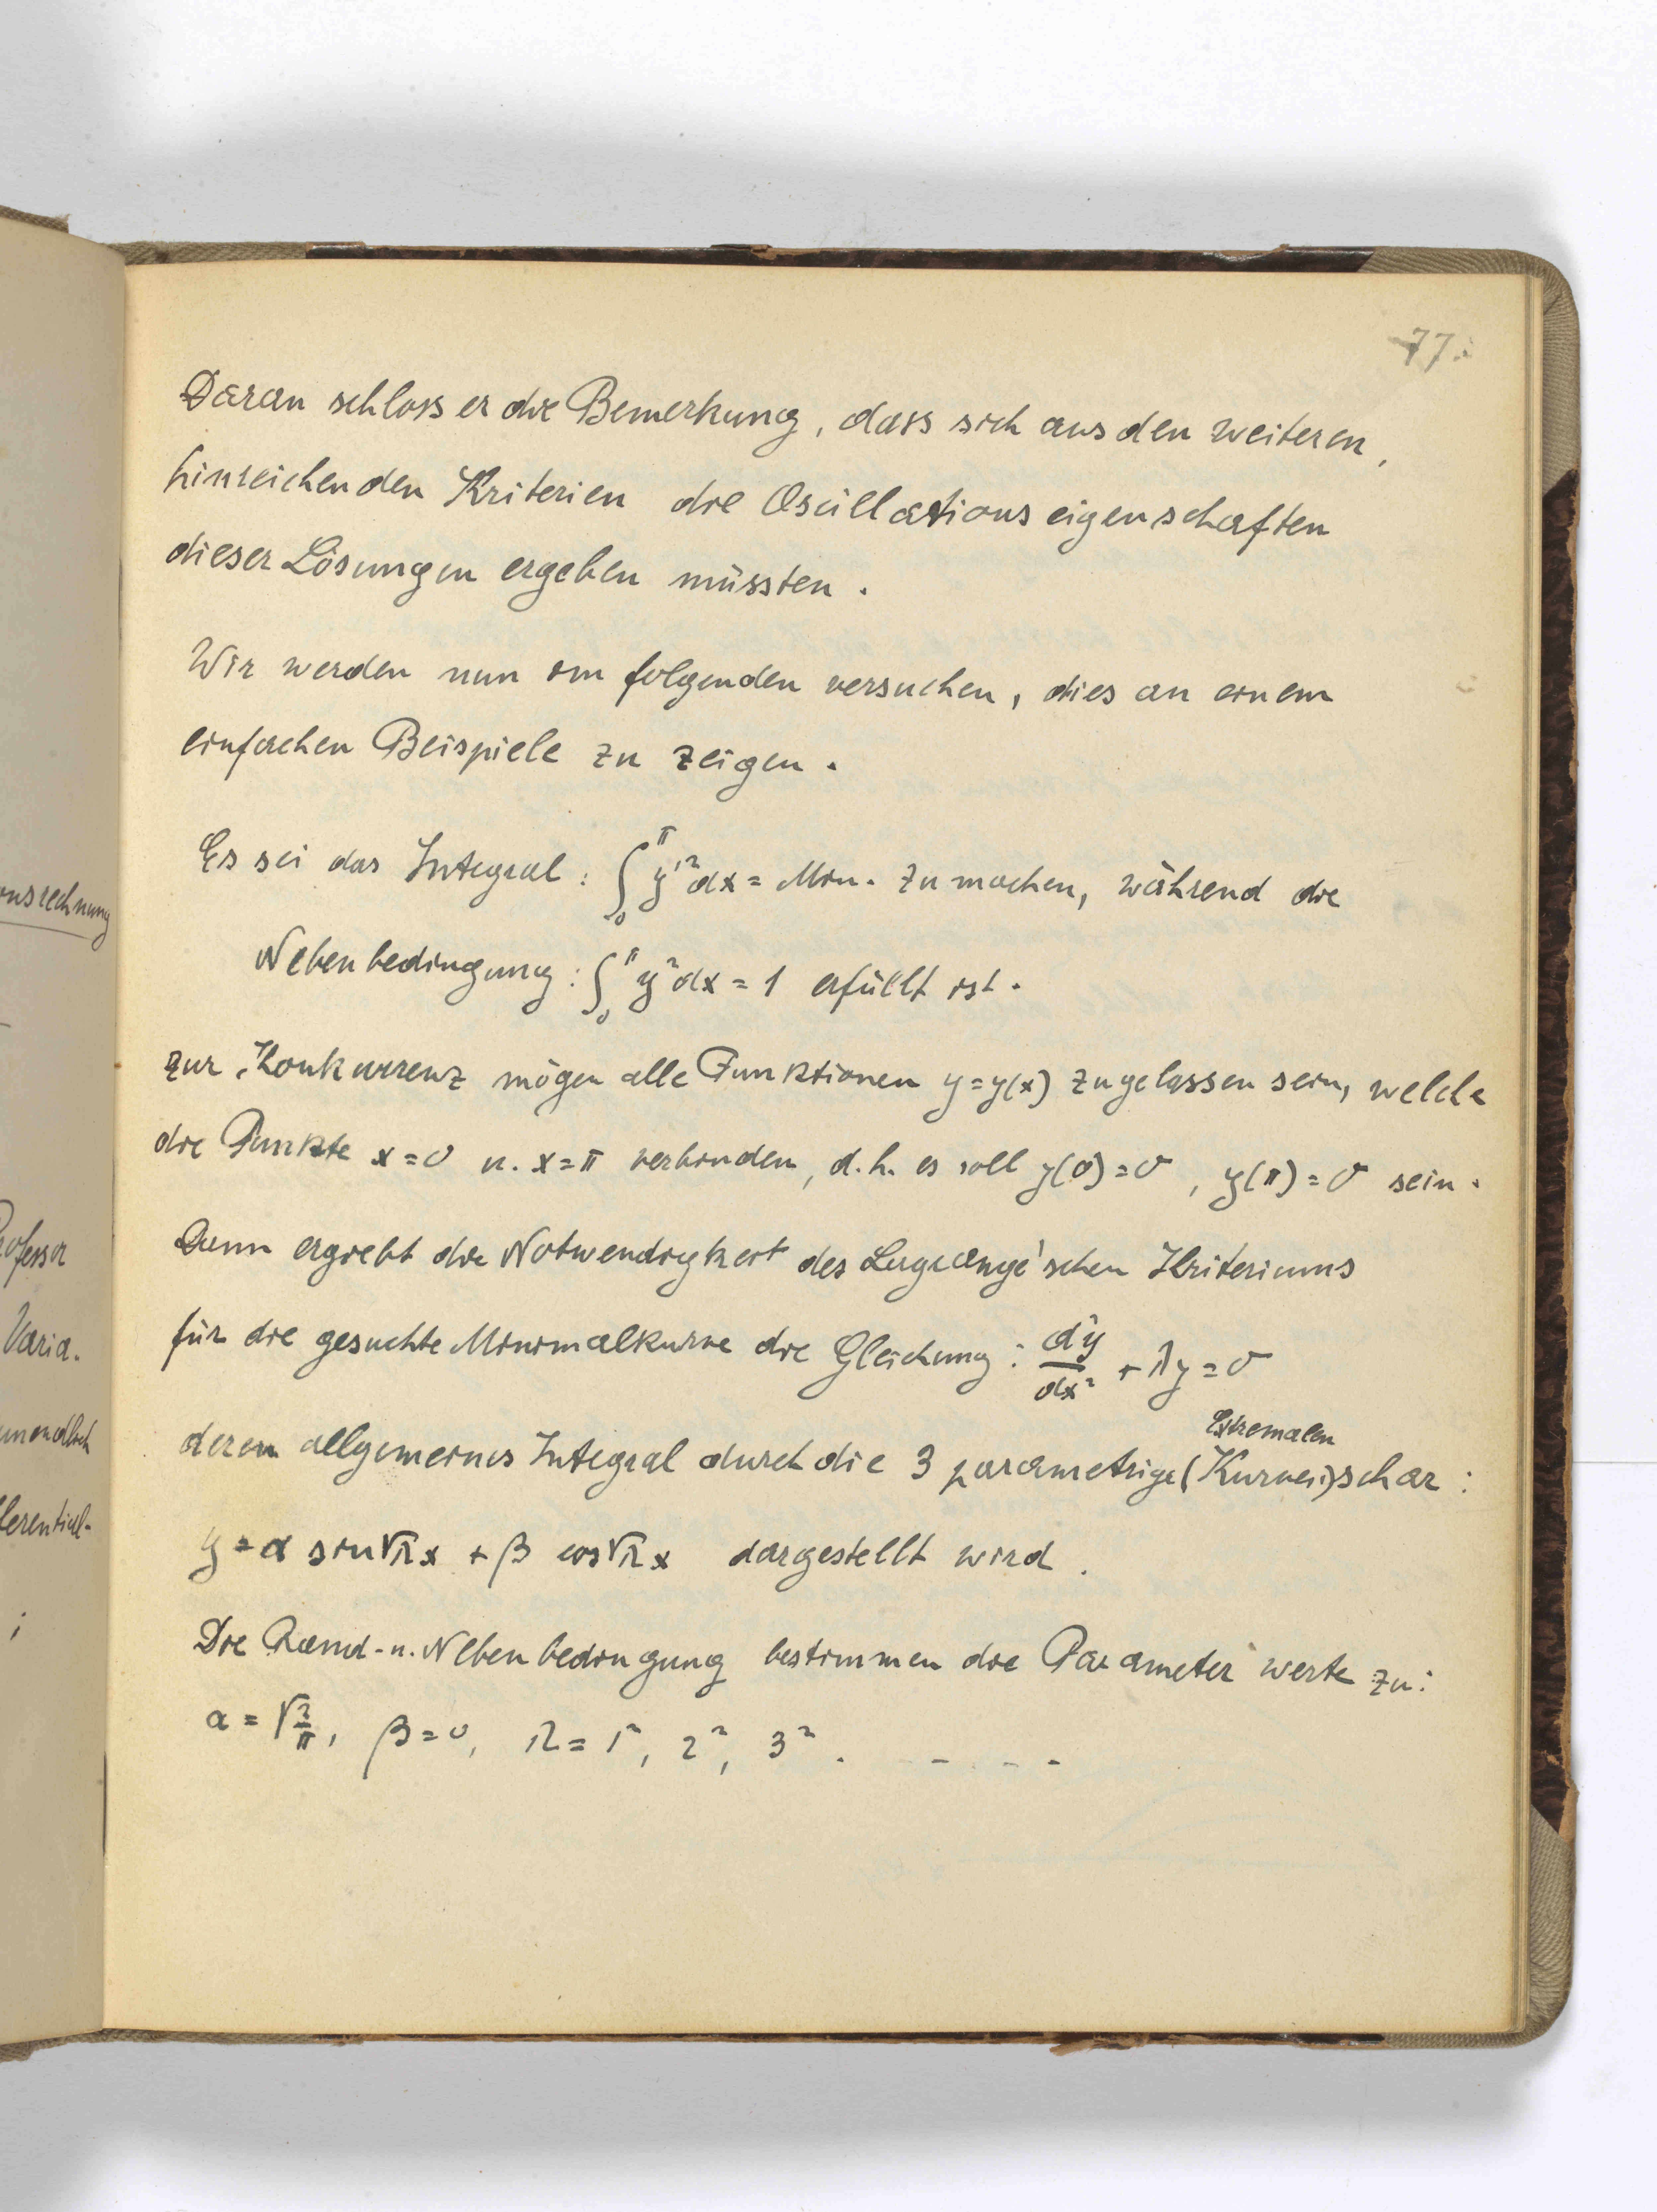 onsrechnung
Professor
Varia-
ferential-
77.
Daran schloss er die Bemerkung, dass sich aus den weiteren,
hinreichenden Kriterien die Oscillationseigenschaften
dieser Lösungen ergeben müssten.
Wir werden nun im folgenden versuchen, dies an einem
einfachen Beispiele zu zeigen.
Es sei das Integral: ∫₀^π y'² dx = Min. zu machen, während die
Nebenbedingung: ∫₀^π y² dx = 1 erfüllt ist.
Zur Konkurrenz mögen alle Funktionen y=y(x) zugelassen sein, welche
die Punkte x=0 u. x=π verbinden, d.h. es soll y(0)=0, y(π)=0 sein.
Dann ergiebt die Notwendigkeit des Lagrange'schen Kriteriums
für die gesuchte Minimalkurve die Gleichung: d²y/dx² + λy = 0
Extremalen
deren allgemeines Integral durch die 3 parametrige (Kurven)schar:
y = α sin√λ x + β cos√λ x dargestellt wird.
Die Rand- u. Nebenbedingung bestimmen die Parameterwerte zu:
α = √(2/π), β = 0, λ = 1², 2², 3² . - - - -